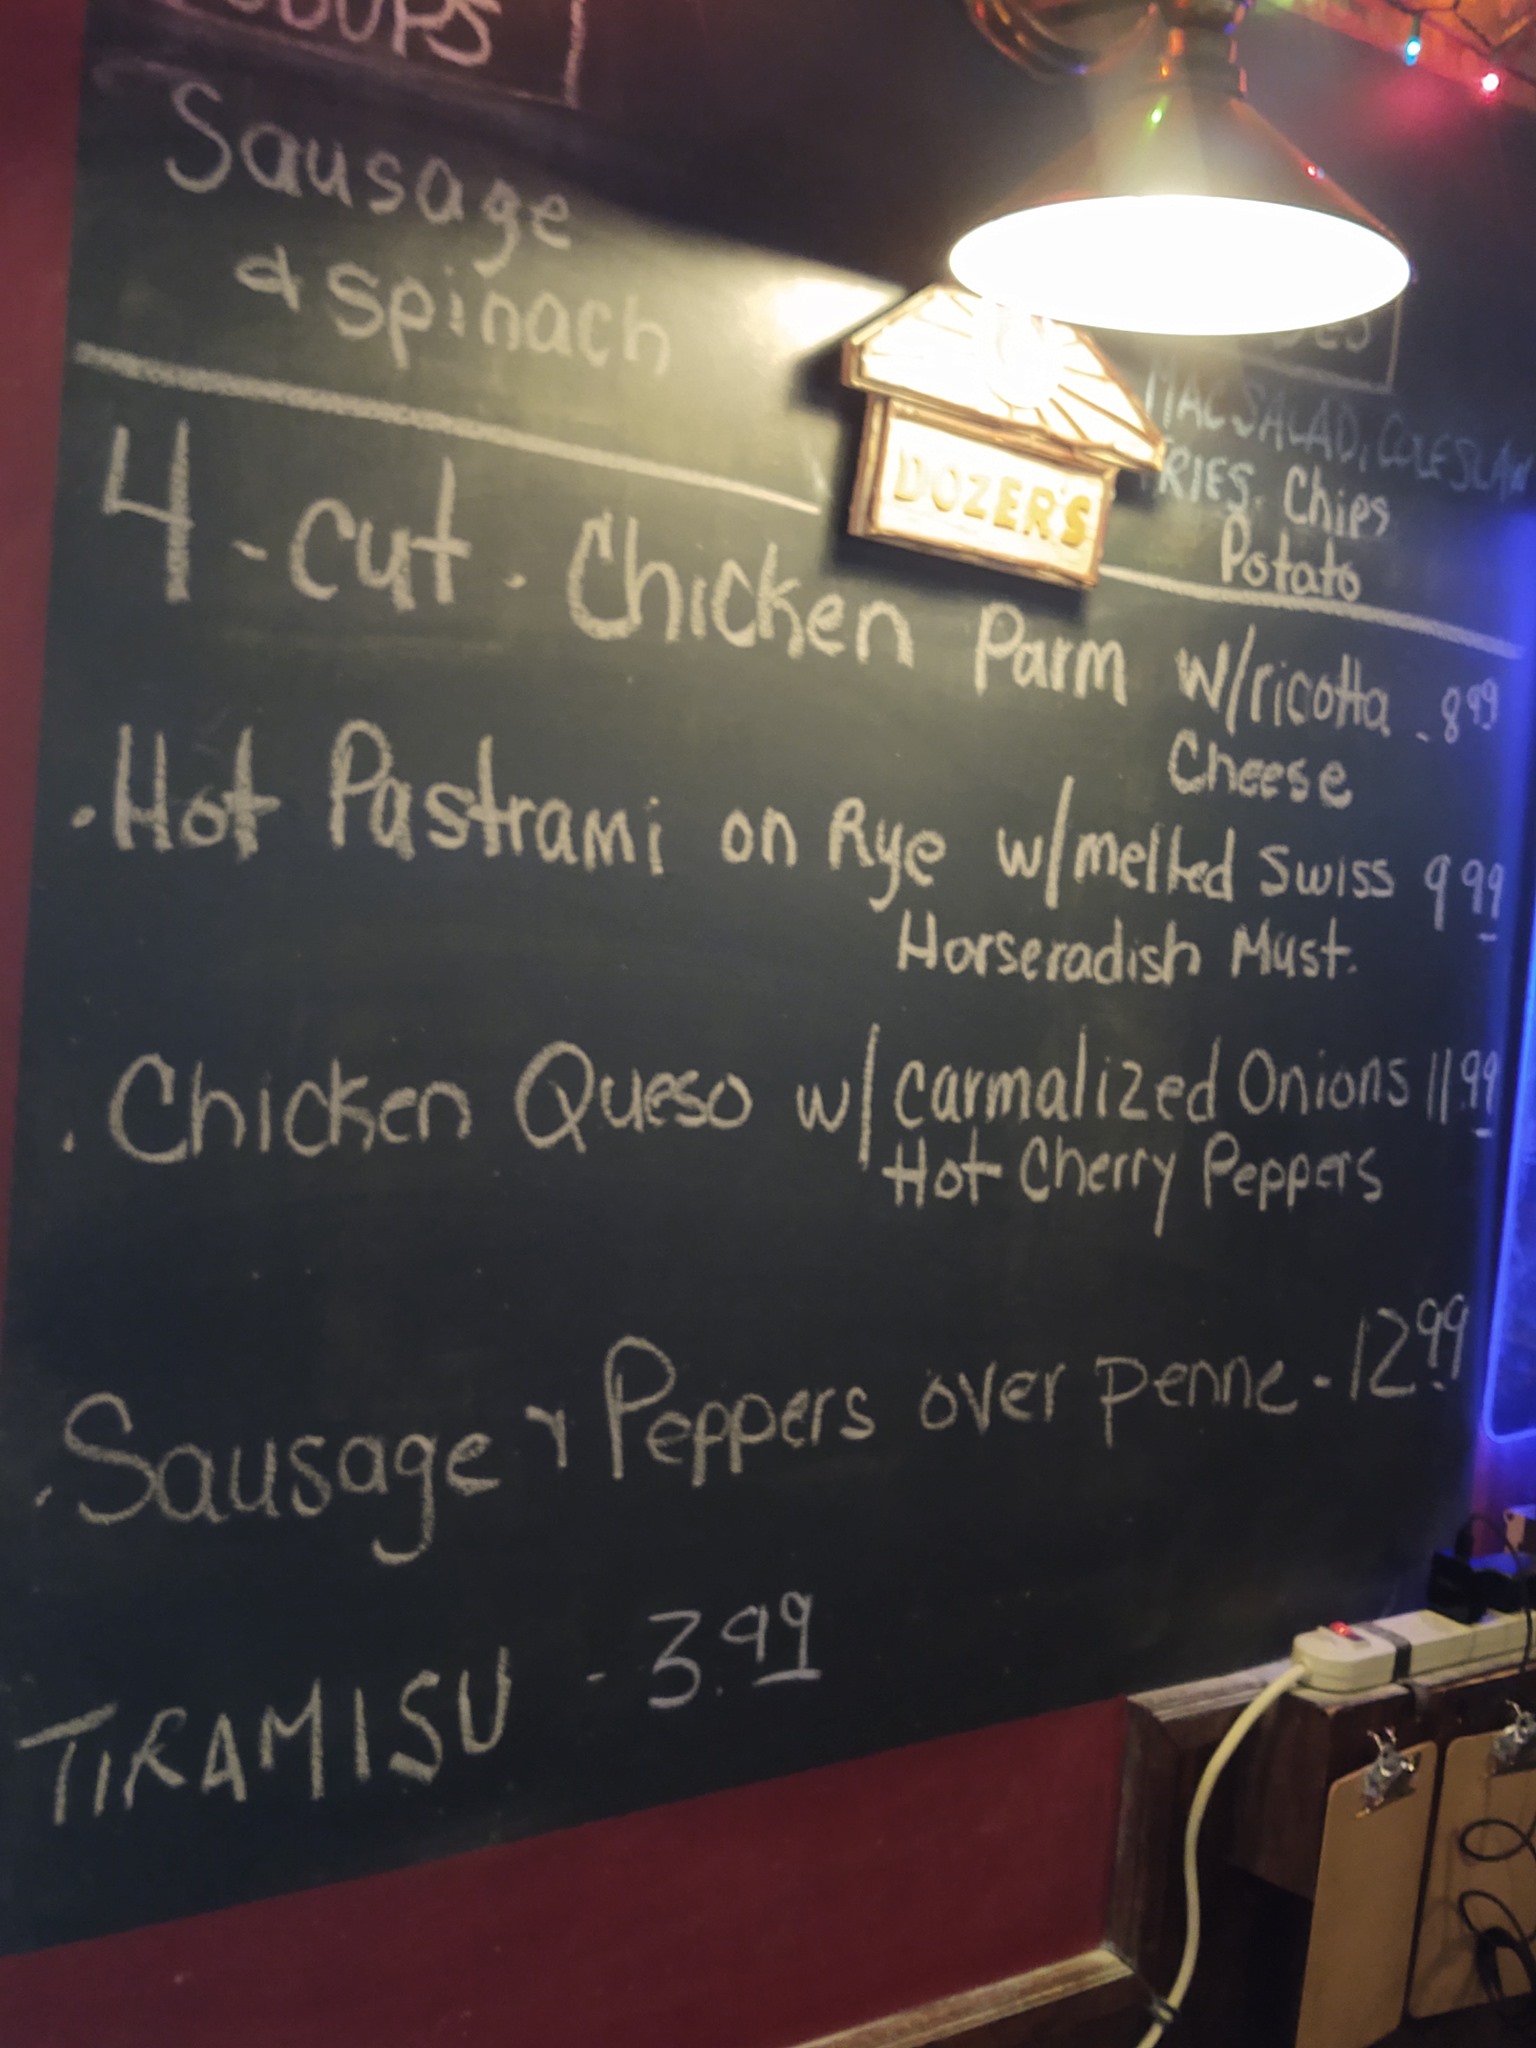 Sausage
& Spinach
DOZER'S
MAC SALAD, COLESLAW
FRIES. Chips
Potato
4-cut. Chicken Parm w/ricotta - 8 99
Cheese
. Hot Pastrami on Rye w/melted Swiss 9 99
Horseradish Must.
. Chicken Queso w/ carmalized Onions 11.99
Hot Cherry Peppers
. Sausage & Peppers over penne - 12.99
TIRAMISU - 3.99